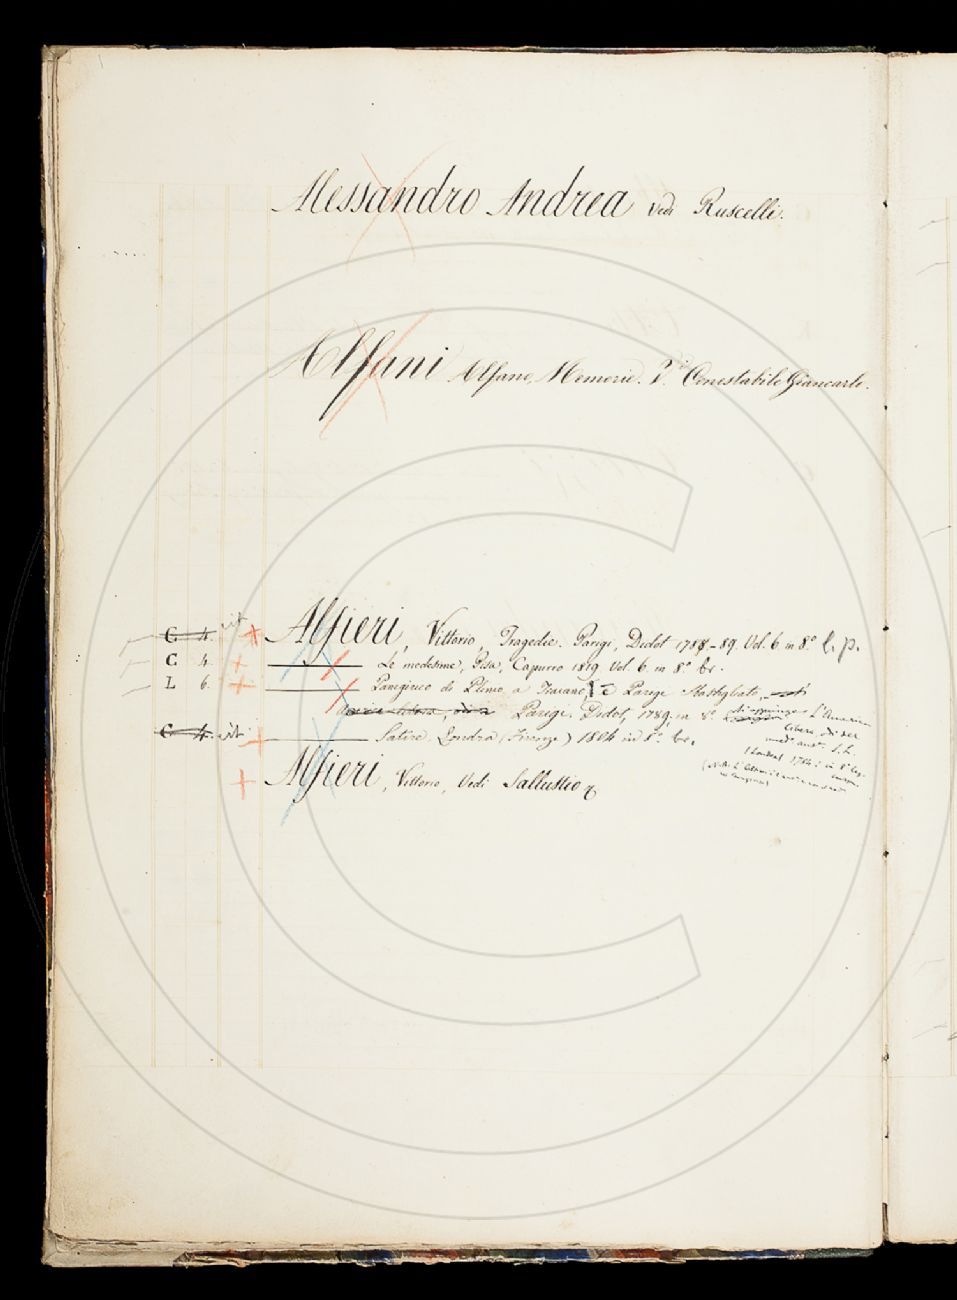 Alessandro Andrea vedi Ruscelli.
Alfani Alfano, Memorie. Vi. Conestabile Giancarlo.
C 4. vit + Alfieri, Vittorio, Tragedie. Parigi, Didot 1788-89. Vol. 6 in 8.° l. p.
C 4. + Le medesime, Pisa, Capurro 1819 Vol. 6 in 8.° br.
L 6. + Panegirico di Plinio, a Trajano, e Parigi Sbastigliato,
Parigi. Didot, 1789, in 8.° si aggiunge L'America
libera, di ser
C 4. vit + Satire. Londra (Firenze) 1804 in 8.° br.
(Londra) 1784: in 8° leg.
+ Alfieri, Vittorio, Vedi Sallustio